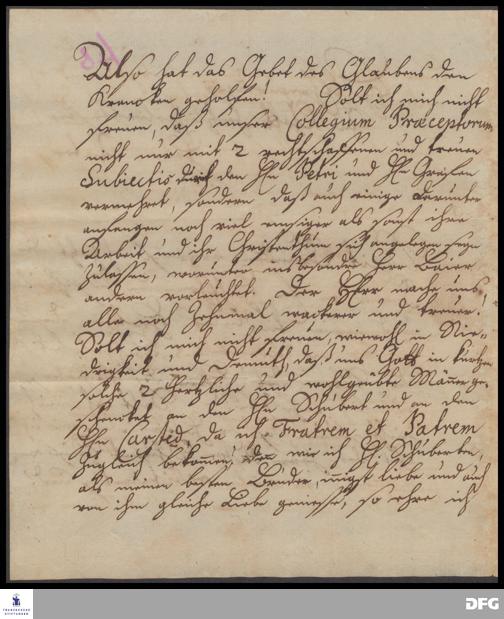 Also hat das Gebet des Glaubens den
Krancken geholfen! Solt ich mich nicht
freuen, daß unser Collegium Præceptorum
nicht nur mit 2 rechtschaffenen und treuen
Subiectis durch den Hn Petri und Hn Grafen
vermehret, sondern daß auch einige darunter
anfangen noch viel emsiger als sonst ihre
Arbeit und ihr Christenthum sich angelegen seyn
zulassen, worunter insbesondre Herr Baier
andern vorleuchtet. Der Herr mache uns
alle noch zehnmal wackerer und treuer!
Solt ich mich nicht freuen, wiewohl in Nie-
drigkeit und Demuth, daß uns Gott in kurtzen
solche 2 hertzliche und wohlgeübte Männer ge-
schencket an den Hn Schubert und an den
Hn Carsted, da ich Fratrem et Patrem
zugleich bekommen; denn wie ich H. Schuberten,
als meinen besten Bruder, innigst liebe und auch
von ihm gleiche Liebe geniesse, so ehre ich
FRANCKESCHE
STIFTUNGEN
DFG